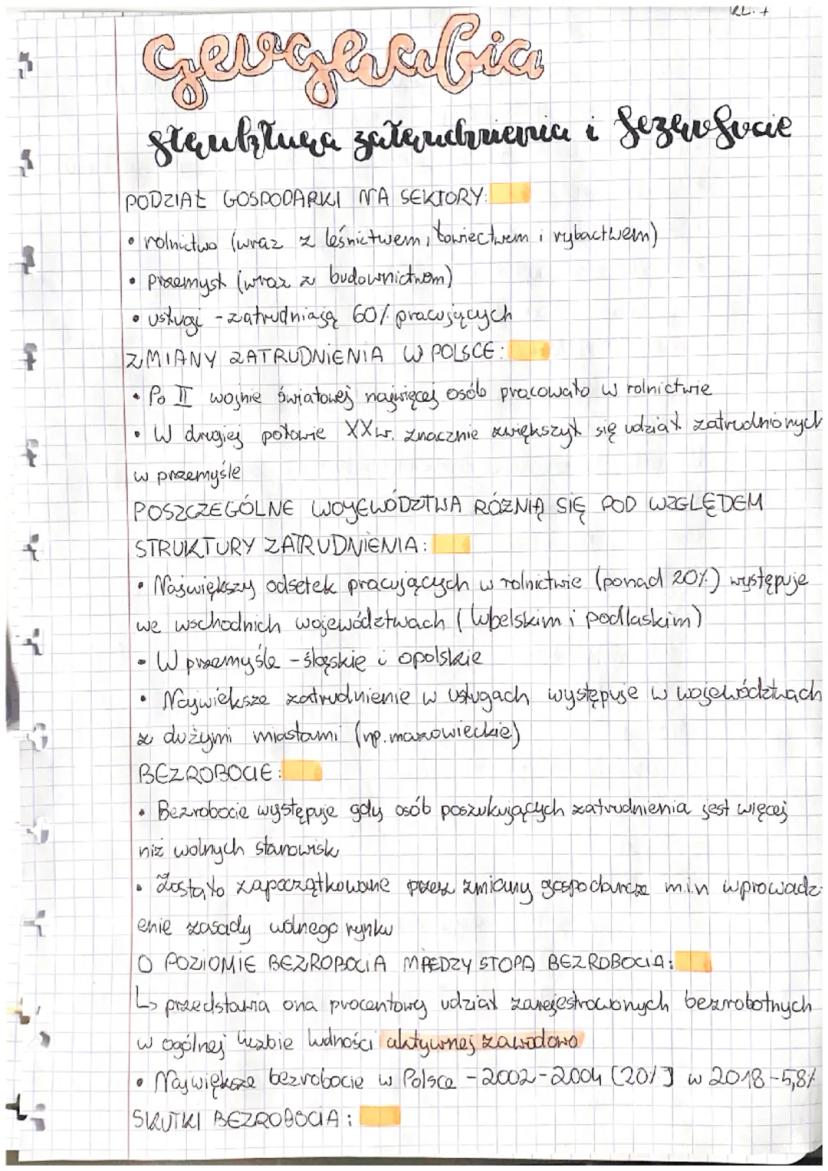 KL. 7
geografia
struktura zatrudnienia i bezrobocie
PODZIAŁ GOSPODARKI NA SEKTORY:
• rolnictwo (wraz z leśnictwem, łowiectwem i rybactwem)
• przemysł (wraz z budownictwem)
• usługi - zatrudniają 60% pracujących
ZMIANY ZATRUDNIENIA W POLSCE:
• Po II wojnie światowej najwięcej osób pracowało w rolnictwie
• W drugiej połowie XXw. znacznie zwiększył się udział zatrudnionych
w przemyśle
POSZCZEGÓLNE WOJEWÓDZTWA RÓŻNIĄ SIĘ POD WZGLĘDEM
STRUKTURY ZATRUDNIENIA:
• Największy odsetek pracujących w rolnictwie (ponad 20%) występuje
we wschodnich województwach (lubelskim i podlaskim)
• W przemyśle - śląskie i opolskie
• Największe zatrudnienie w usługach występuje w województwach
z dużymi miastami (np. mazowieckie)
BEZROBOCIE:
• Bezrobocie występuje gdy osób poszukujących zatrudnienia jest więcej
niż wolnych stanowisk
• Zostało zapoczątkowane przez zmiany gospodarcze m.in wprowadz-
enie zasady wolnego rynku
O POZIOMIE BEZROBOCIA STOPA BEZROBOCIA:
↳ przedstawia ona procentowy udział zarejestrowanych bezrobotnych
w ogólnej liczbie ludności aktywnej zawodowo
• Największe bezrobocie w Polsce - 2002-2004 (20%) w 2018 - 5,8%
SKUTKI BEZROBOCIA: